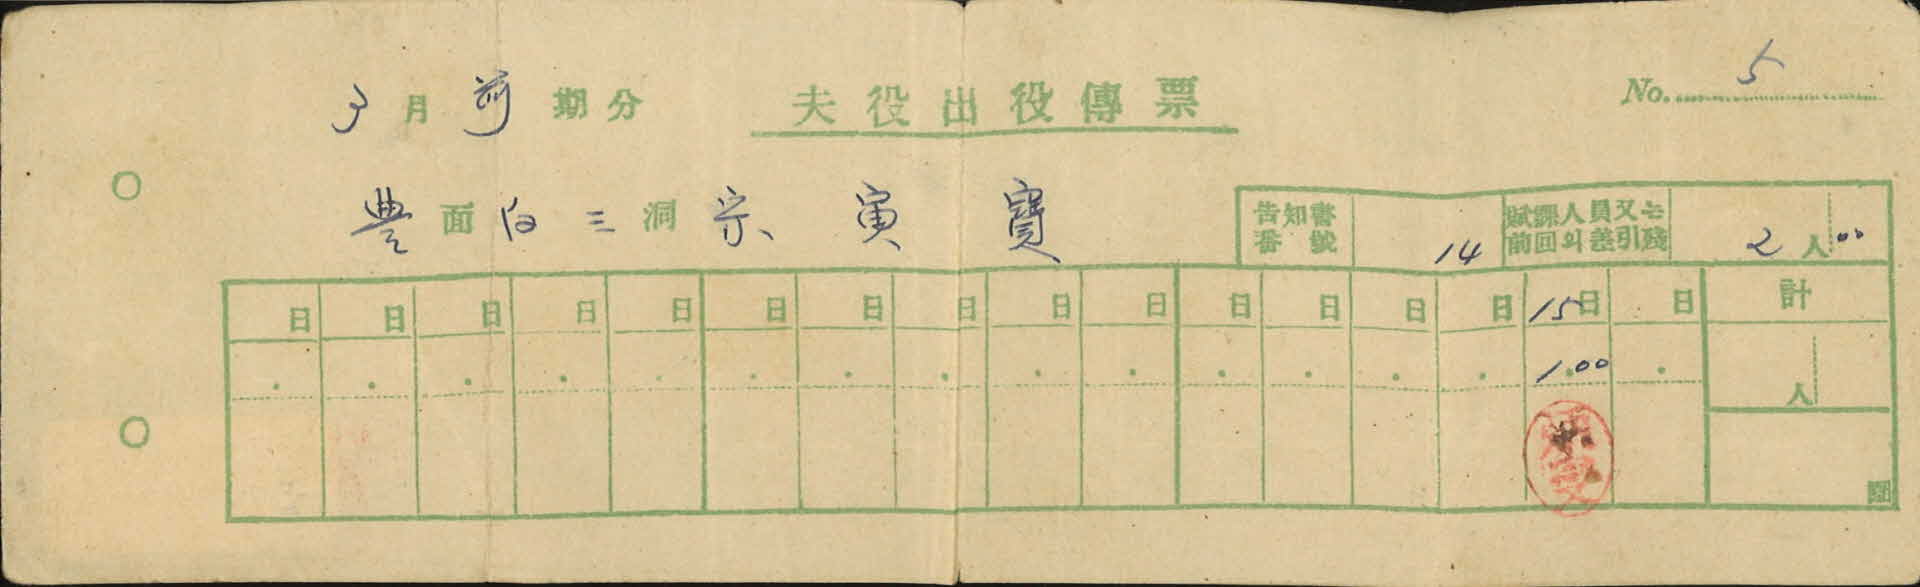 3月前期分 夫役出役傳票 No. 5
豊面白三洞宗寅寶
告知書番號 14 賦課人員又는前回의差引殘 2人00
日 日 日 日 日 日 日 日 日 日 日 日 日 日 15日 日 計
1.00 人